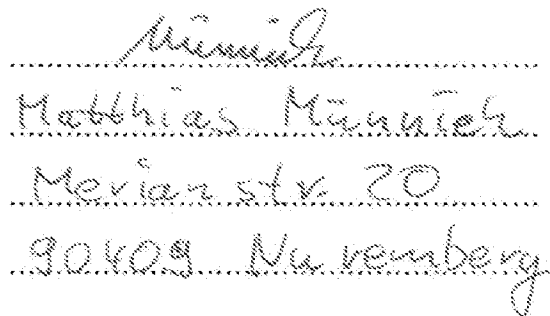 Münnich
Matthias Münnich
Merianstr. 20
90409 Nuremberg